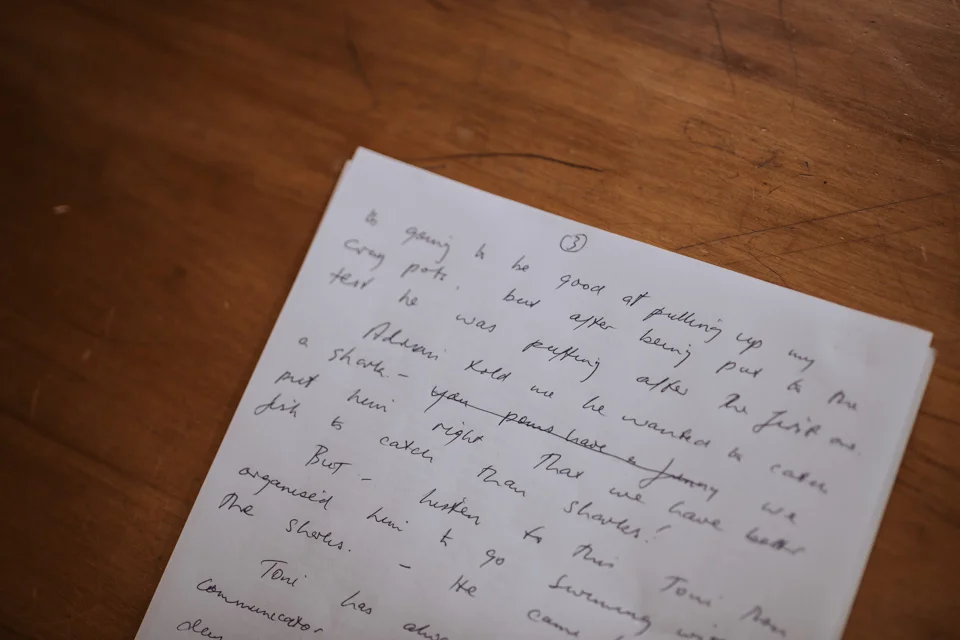 ③
is going to be good at pulling up my
cray pots. but after being put to the
test he was puffing after the first one.
Adrian told me he wanted to catch
a shark - you poms have a funny we
put him right that we have better
fish to catch than sharks!
But - listen to this Toni has
organised him to go swimming with
the sharks. - He came
Toni has
communicator